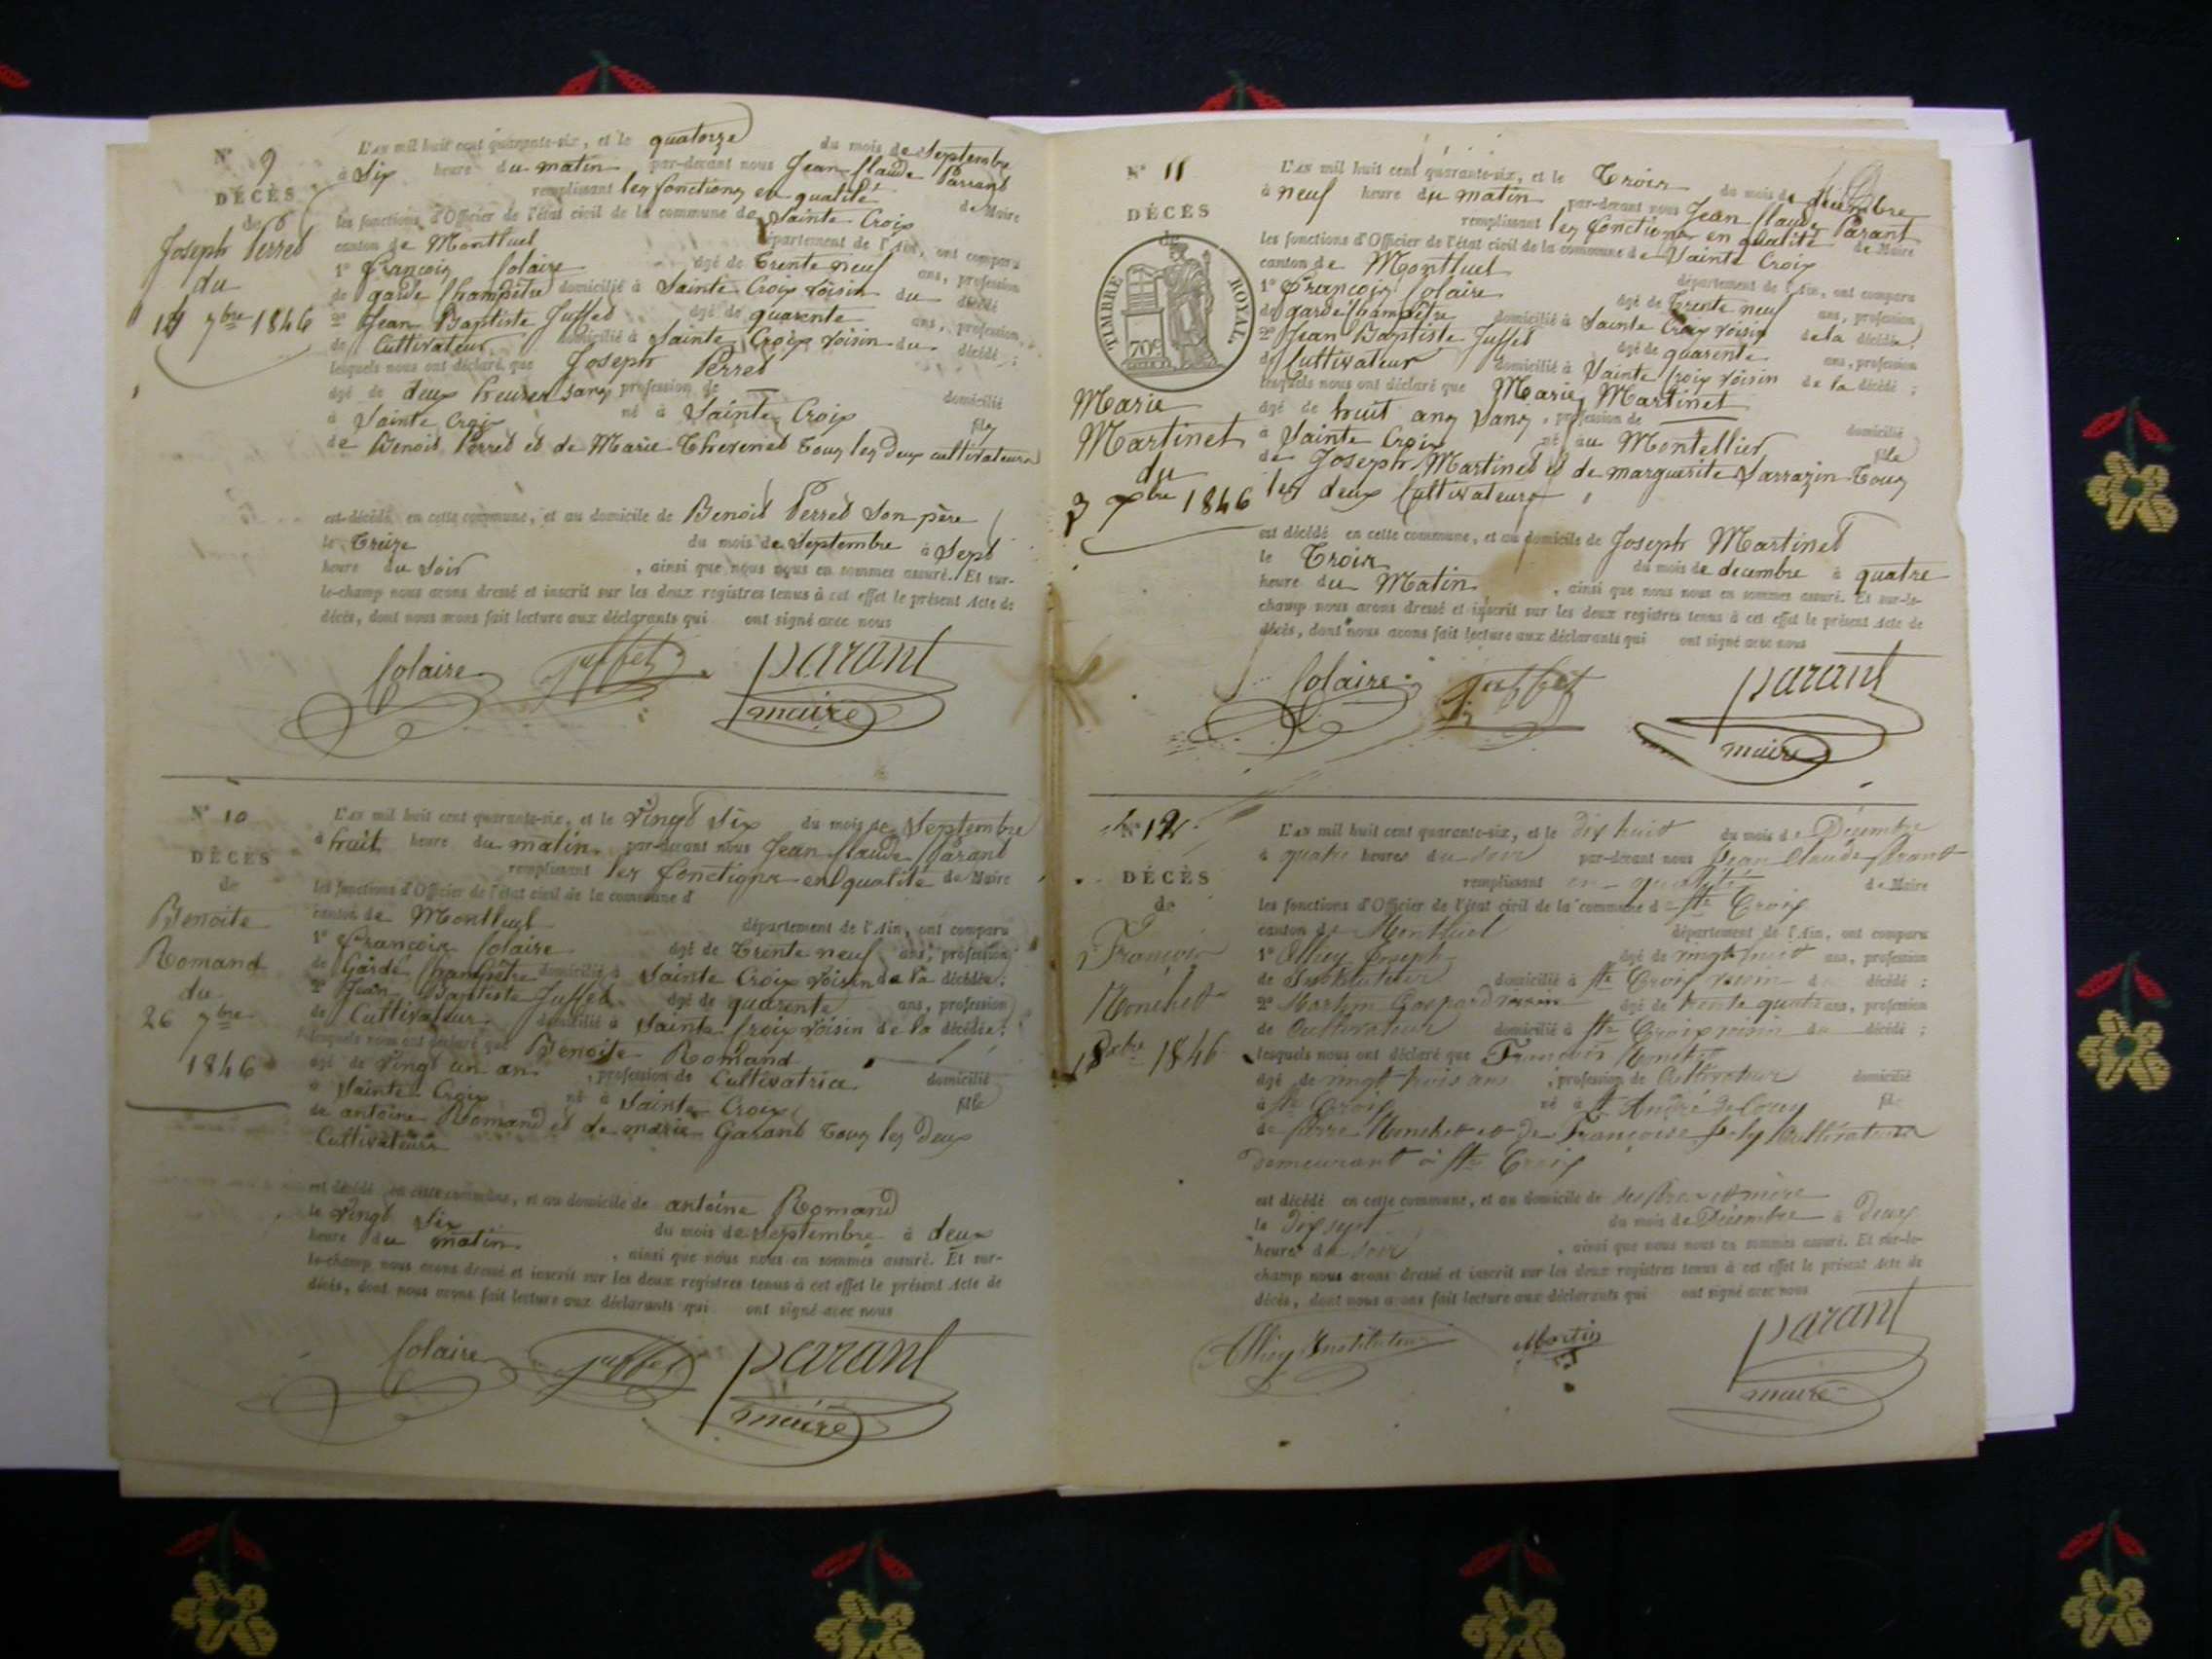 N° 9
DÉCÈS
de
Joseph Perret
du
14 7bre 1846
L'AN mil huit cent quarante-six, et le quatorze du mois de Septembre
à Six heure du matin par-devant nous Jean Claude Parant
remplissant les fonctions en qualité de Maire
les fonctions d'Officier de l'état civil de la commune de Sainte Croix
canton de Montluel département de l'Ain, ont comparu
1° François Colaire agé de Trente neuf ans, profession
de garde Champêtre domicilié à Sainte Croix voisin du décédé
2° Jean Baptiste Juffet agé de quarente ans, profession
de Cultivateur domicilié à Sainte Croix voisin du décédé ;
lesquels nous ont déclaré que Joseph Perret
agé de deux heures sans profession de — domicilié
à Sainte Croix né à Sainte Croix fils
de Benoit Perret et de Marie Thevenet Tous les deux cultivateurs
est décédé en cette commune, et au domicile de Benoit Perret Son père
le Treize du mois de Septembre à Sept
heure du Soir , ainsi que nous nous en sommes assuré. Et sur-
le-champ nous avons dressé et inscrit sur les deux registres tenus à cet effet le présent Acte de
décès, dont nous avons fait lecture aux déclarants qui ont signé avec nous
Colaire Juffet parant
maire
N° 10
DÉCÈS
de
Benoite
Romand
du
26 7bre
1846
L'AN mil huit cent quarante-six, et le Vingt Six du mois de Septembre
à huit heure du matin par-devant nous Jean Claude Parant
remplissant les fonctions en qualité de Maire
les fonctions d'Officier de l'état civil de la commune d
canton de Montluel département de l'Ain, ont comparu
1° François Colaire agé de Trente neuf ans, profession
de Garde Champêtre domicilié à Sainte Croix voisin de la décédée ;
2° Jean Baptiste Juffet agé de quarente ans, profession
de Cultivateur domicilié à Sainte Croix voisin de la décédée ;
lesquels nous ont déclaré que Benoite Romand
agé de Vingt un an , profession de Cultivatrice domicilié
à Sainte Croix né à Sainte Croix fille
de antoine Romand et de marie Garant Tous les deux
Cultivateurs
est décédé en cette commune, et au domicile de antoine Romand
le Vingt Six du mois de Septembre à deux
heure du matin , ainsi que nous nous en sommes assuré. Et sur-
le-champ nous avons dressé et inscrit sur les deux registres tenus à cet effet le présent Acte de
décès, dont nous avons fait lecture aux déclarants qui ont signé avec nous
Colaire Juffet parant
maire
N° 11
DÉCÈS
de
TIMBRE ROYAL.
70c
Marie
Martinet
du
3 Xbre 1846
L'AN mil huit cent quarante-six, et le Trois du mois de décembre
à neuf heure du matin par-devant nous Jean Claude Parant
remplissant les fonctions en qualité de Maire
les fonctions d'Officier de l'état civil de la commune de Sainte Croix
canton de Montluel département de l'Ain, ont comparu
1° François Colaire agé de Trente neuf ans, profession
de garde Champêtre domicilié à Sainte Croix voisin de la décédée ;
2° Jean Baptiste Juffet agé de quarente ans, profession
de Cultivateur domicilié à Sainte Croix voisin de la décédé ;
lesquels nous ont déclaré que Marie Martinet
agé de huit ans Sans , profession de — domicilié
à Sainte Croix né au Montellier fille
de Joseph Martinet et de marguerite Sarrazin Tous
les deux Cultivateurs
est décédé en cette commune, et au domicile de Joseph Martinet
le Trois du mois de decembre à quatre
heure du Matin , ainsi que nous nous en sommes assuré. Et sur-le-
champ nous avons dressé et inscrit sur les deux registres tenus à cet effet le présent Acte de
décès, dont nous avons fait lecture aux déclarants qui ont signé avec nous
Colaire Juffet parant
maire
N° 12
DÉCÈS
de
François
Monchet
18 xbre 1846
L'AN mil huit cent quarante-six, et le dix huit du mois de Décembre
à quatre heures du soir par-devant nous Jean Claude Parant
remplissant en qualité de Maire
les fonctions d'Officier de l'état civil de la commune de Ste Croix
canton de Montluel département de l'Ain, ont comparu
1° Joseph agé de vingt huit ans, profession
de Instituteur domicilié à Ste Croix voisin d décédé ;
2° Martin Gaspard agé de trente quatre ans, profession
de Cultivateur domicilié à Ste Croix voisin du décédé ;
lesquels nous ont déclaré que François Monchet
agé de vingt trois ans , profession de Cultivateur domicilié
à Ste Croix né à St André de Corcy fils
de Pierre Monchet et de Françoise Cultivateurs
demeurant à Ste Croix
est décédé en cette commune, et au domicile de ses père et mère
le dix sept du mois de Décembre à deux
heures du soir , ainsi que nous nous en sommes assuré. Et sur-le-
champ nous avons dressé et inscrit sur les deux registres tenus à cet effet le présent Acte de
décès, dont nous avons fait lecture aux déclarants qui ont signé avec nous
Instituteur Martin parant
maire